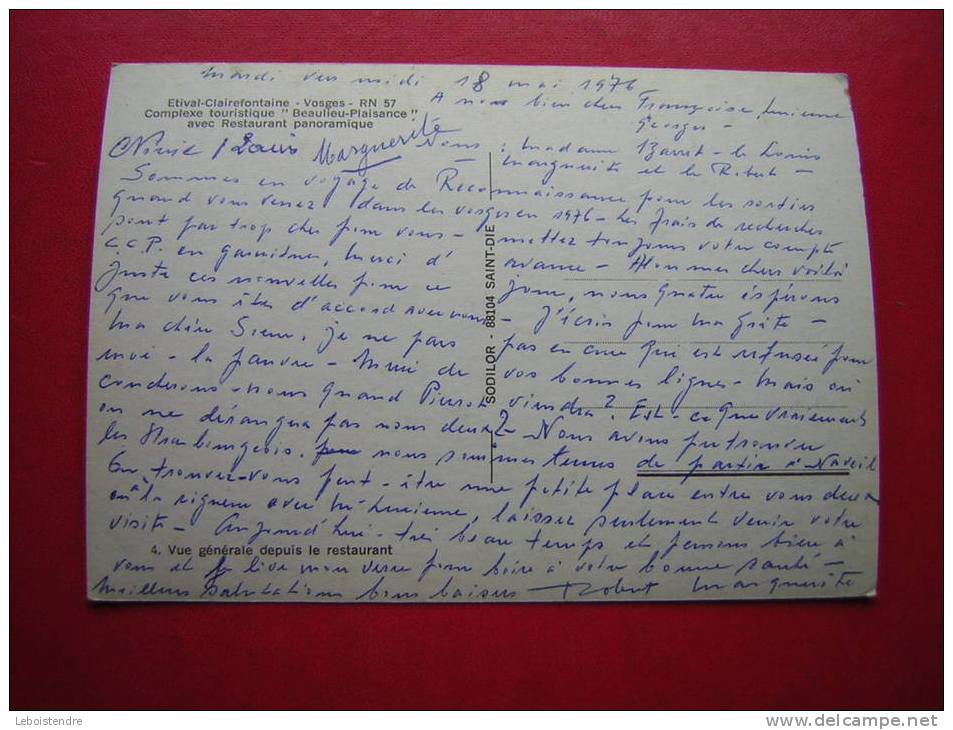 mardi vers midi 18 mai 1976
A nous bien chers Françoise, Lucienne
Georges -
Etival-Clairefontaine - Vosges - RN 57
Complexe touristique " Beaulieu-Plaisance "
avec Restaurant panoramique
Louis Marguerite Nous : Madame - le Louis
Marguerite et le Robert -
Sommes en voyage de Reconnaissance pour les sorties
quand vous venez dans les Vosges en 1976 - Les frais de recherches
sont pas trop cher pour vous - mettez toujours votre compte
C.C.P. en garnitures, merci d' avance - Alors mes chers voilà
juste ces nouvelles pour ce jour, nous quatre espérons
que vous êtes d'accord avec nous - J'écris pour ma
ma chère Soeur, je ne pas pas encore qui est refusée pour
moi - la pauvre - Merci de vos bonnes lignes - Mais où
conderons-nous quand Pierrot viendra ? Est-ce que vraiement
on ne dérangera pas nous deux ? - Nous avons pu trouver
les Strasbourgeois. nous sommes tenus de partir à Naveil
trouvez-vous peut-être une petite place entre vous deux
où à la rigueur avec Lucienne, laissez seulement venir votre
visite - Aujourd'hui - très beau temps et pensons bien à
4. Vue générale depuis le restaurant
vous et je lève mon verre pour boire à votre bonne santé -
meilleurs salutations bons baisers - Robert Marguerite
SODILOR - 88104 SAINT-DIE
Leboistendre
www.delcampe.net